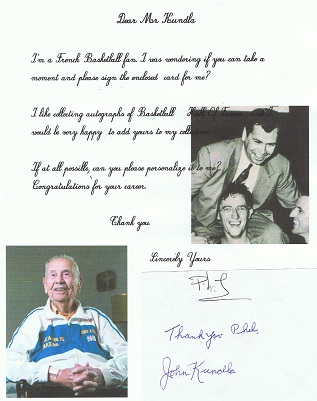 Dear Mr Kundla
I'm a French Basketball fan. I was wondering if you can take a
moment and please sign the enclosed card for me?
I like collecting autographs of Basketball Hall Of
would be very happy to add yours to my collection
If at all possible, can you please personalize it to me?
Congratulations for your career.
Thank you
Sincerely Yours
Phil
Thank you Phil,
John Kundla